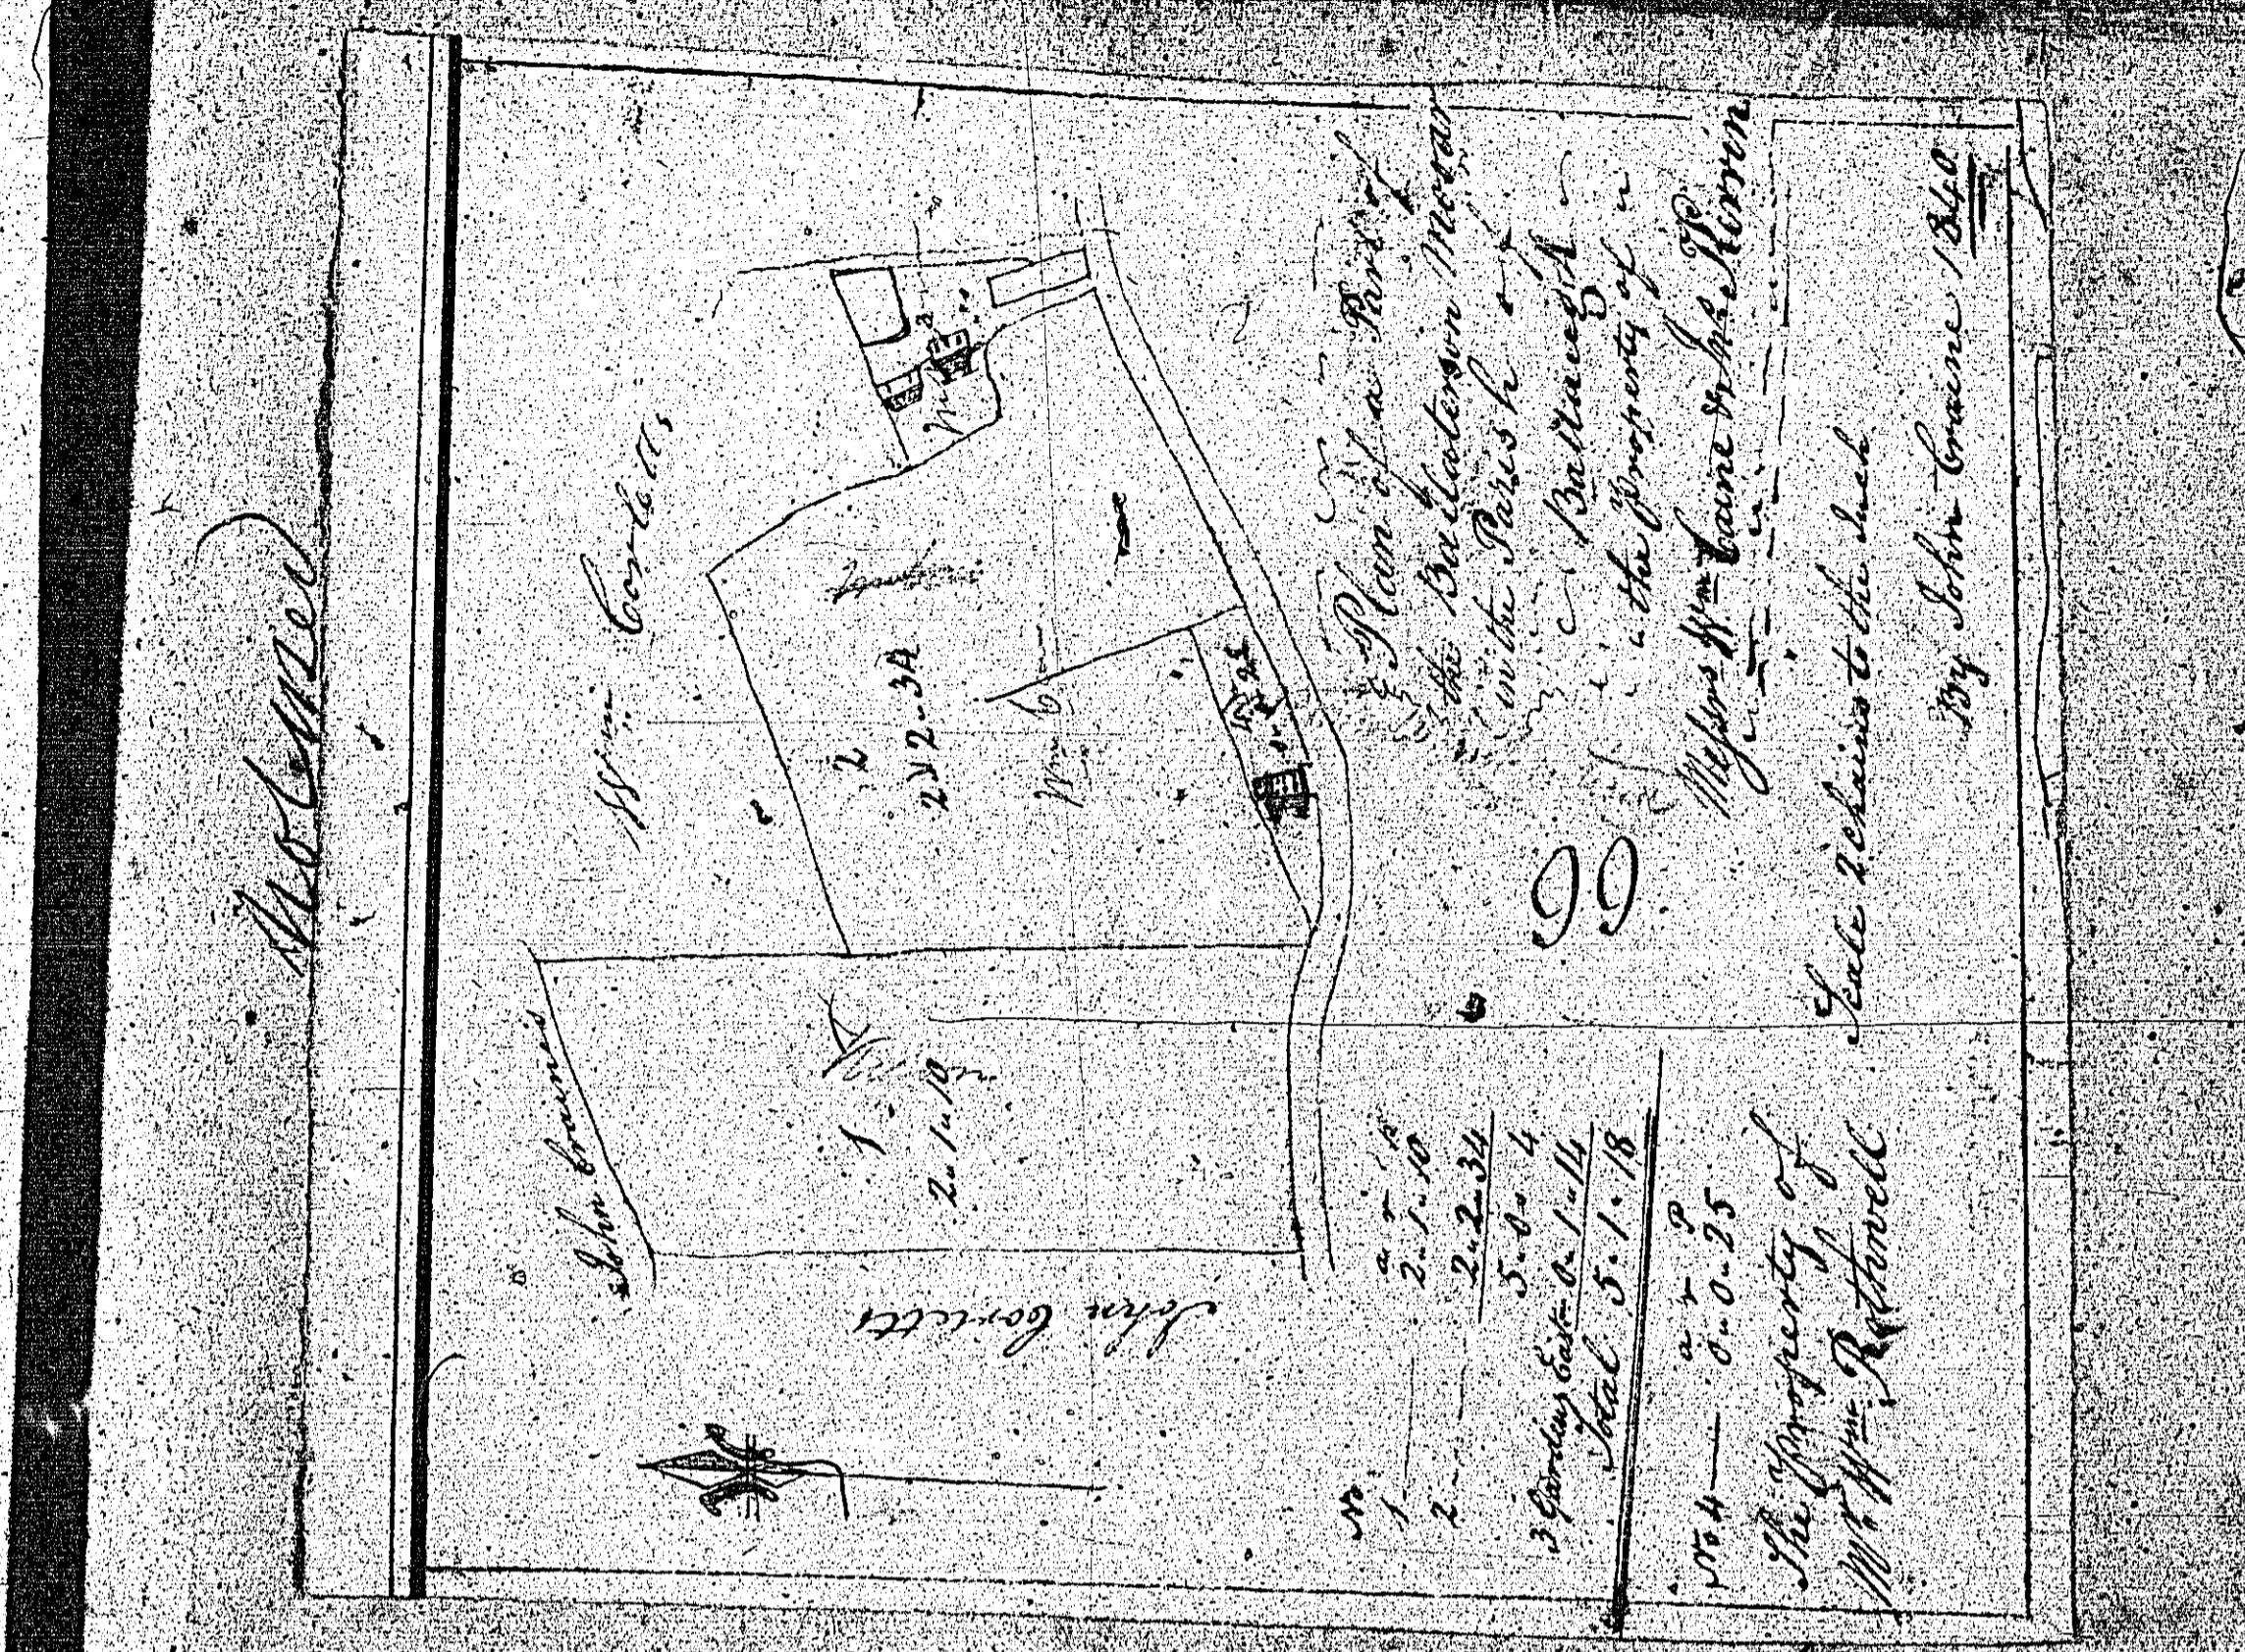 Wm Corletts
John Craines
John Corletts
1
2" 1" 10
2
2" 2" 34
Wm
No. a r p
1 — 2" 1" 10
2 — 2" 2" 34
5" 0" 4
3 Gardens East 0" 1" 14
Total 5" 1" 18
a r P
No 4 — 0" 0" 25
The Property of
Mr. Wm Rothwell
Plan of a Part of
the Ballaterson Mooar
in the Parish of
Ballaugh
the Property of
Messrs Wm Caine & Jno. Kerrin
Scale 2 chains to the Inch
By John Craine 1840